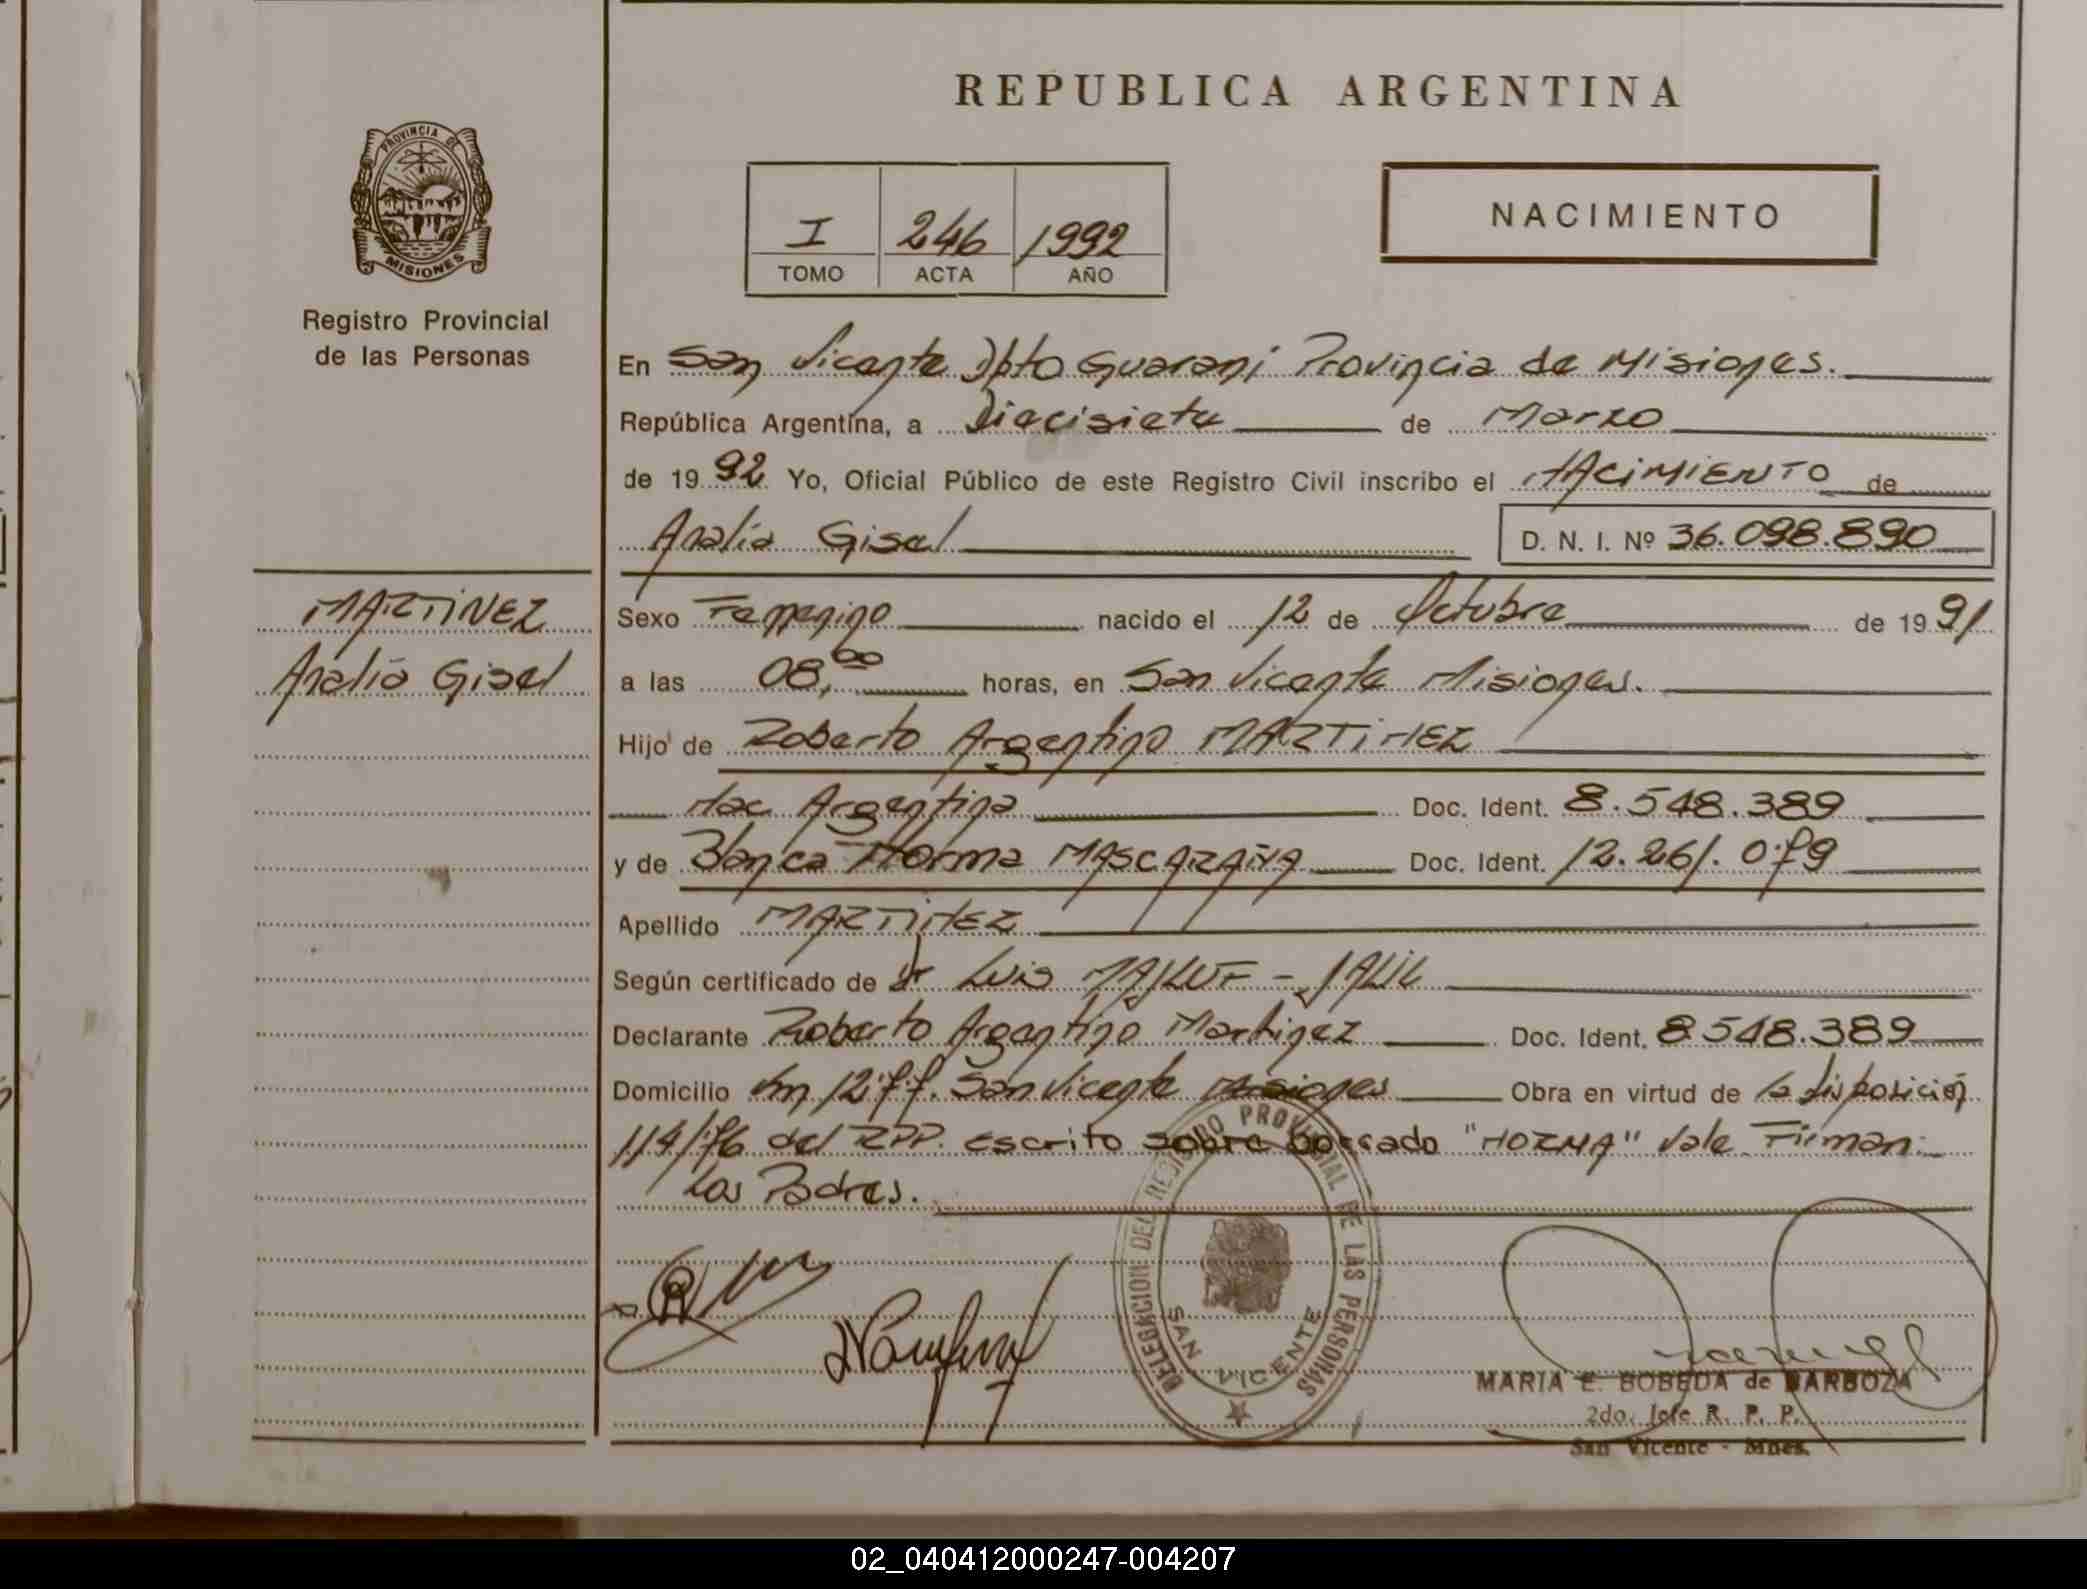 REPUBLICA ARGENTINA
PROVINCIA DE
MISIONES
Registro Provincial
de las Personas
I 246 1992
TOMO ACTA AÑO
NACIMIENTO
En San Vicente Dpto Guaraní Provincia de Misiones.
República Argentina, a Diecisiete de Marzo
de 19 92 Yo, Oficial Público de este Registro Civil inscribo el NACIMIENTO de
Analía Gisel D. N. I. Nº 36.098.890
MARTINEZ
Analía Gisel
Sexo Femenino nacido el 12 de Octubre de 19 91
a las 08,00 horas, en San Vicente Misiones.
Hijo de Roberto Argentino MARTINEZ
Nac Argentina Doc. Ident. 8.548.389
y de Blanca Norma MASCARAÑA Doc. Ident. 12.261.079
Apellido MARTINEZ
Según certificado de Dr Luis MAJLUF - JALIL
Declarante Roberto Argentino Martinez Doc. Ident. 8.548.389
Domicilio Km 1277. San Vicente Misiones Obra en virtud de la disposición
114/76 del RPP. escrito sobre borrado "NORMA" Vale Firman:
Los Padres.
DELEGACION DEL REGISTRO PROVINCIAL DE LAS PERSONAS
SAN VICENTE
MARIA E. BOBEDA de BARBOZA
2do. Jefe R. P. P.
San Vicente - Mnes.
02_040412000247-004207